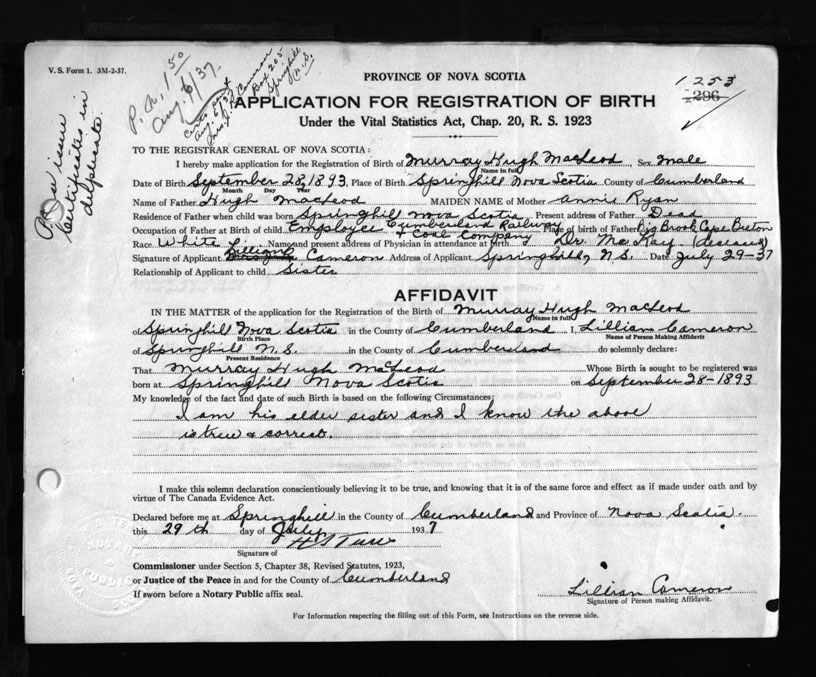 V. S. Form 1. 3M-2-37.
P. N. 1 50
Aug. 6/37.
Certs sent
Aug. 6/37
Cameron
Box 205
Springhill
N. S.
issue
Certificates in
duplicate.
PROVINCE OF NOVA SCOTIA
1253
296
APPLICATION FOR REGISTRATION OF BIRTH
Under the Vital Statistics Act, Chap. 20, R. S. 1923
TO THE REGISTRAR GENERAL OF NOVA SCOTIA:
I hereby make application for the Registration of Birth of Murray Hugh MacLeod, Sex Male
Name in full
Date of Birth September 28, 1893, Place of Birth Springhill Nova Scotia County of Cumberland
Month Day Year
Name of Father Hugh MacLeod MAIDEN NAME of Mother Annie Ryan
Residence of Father when child was born Springhill Nova Scotia Present address of Father Dead
Occupation of Father at Birth of child Employee Cumberland Railway & Coal Company Place of birth of Father Big Brook Cape Breton
Race White Name and present address of Physician in attendance at birth Dr. McKay (deceased)
Signature of Applicant Lillian Cameron Address of Applicant Springhill, N.S. Date July 29-37
Relationship of Applicant to child Sister
AFFIDAVIT
IN THE MATTER of the application for the Registration of the Birth of Murray Hugh MacLeod
(Name in full)
of Springhill Nova Scotia in the County of Cumberland I, Lillian Cameron
Birth Place Name of Person Making Affidavit
of Springhill N.S. in the County of Cumberland do solemnly declare:
Present Residence
That Murray Hugh MacLeod Whose Birth is sought to be registered was
born at Springhill Nova Scotia on September 28-1893
My knowledge of the fact and date of such Birth is based on the following Circumstances:
I am his elder sister and I know the above
is true & correct.
I make this solemn declaration conscientiously believing it to be true, and knowing that it is of the same force and effect as if made under oath and by
virtue of The Canada Evidence Act.
Declared before me at Springhill in the County of Cumberland and Province of Nova Scotia.
this 29th day of July 1937
Signature of
Commissioner under Section 5, Chapter 38, Revised Statutes, 1923,
or Justice of the Peace in and for the County of Cumberland
If sworn before a Notary Public affix seal.
Lillian Cameron
Signature of Person making Affidavit.
For Information respecting the filling out of this Form, see Instructions on the reverse side.